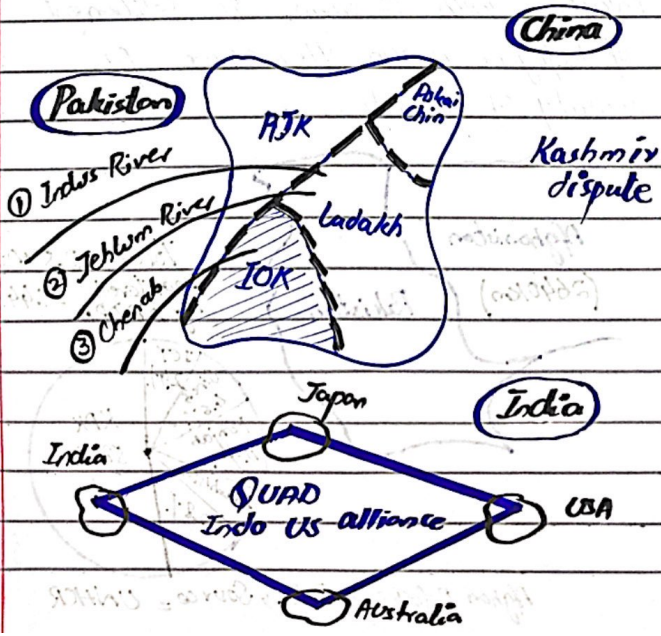 China
Pakistan
AJK
Aksai
Chin
Kashmir
dispute
① Indus River
② Jehlum River
Ladakh
IOK
③ Chenab
India
Japan
India
QUAD
Indo US alliance
USA
Australia